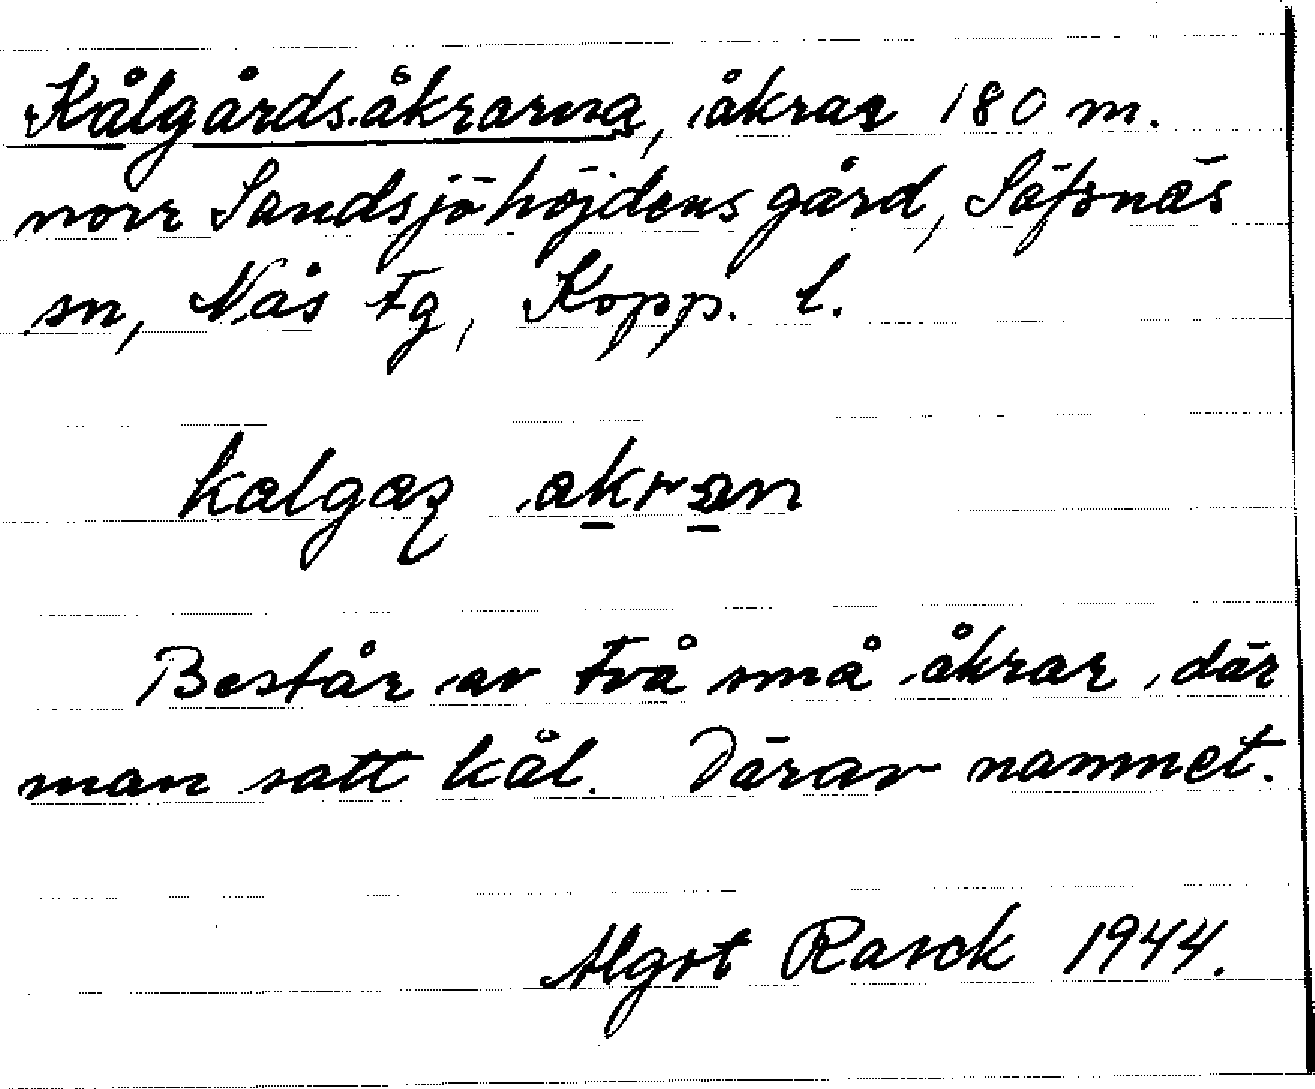 Kålgårdsåkrarna, åkrar 180 m.
norr Sandsjöhöjdens gård, Säfsnäs
sn, Nås tg, Kopp. l.
kalgaʐ akran
Består av två små åkrar, där
man satt kål. Därav namnet.
Algot Rasck 1944.